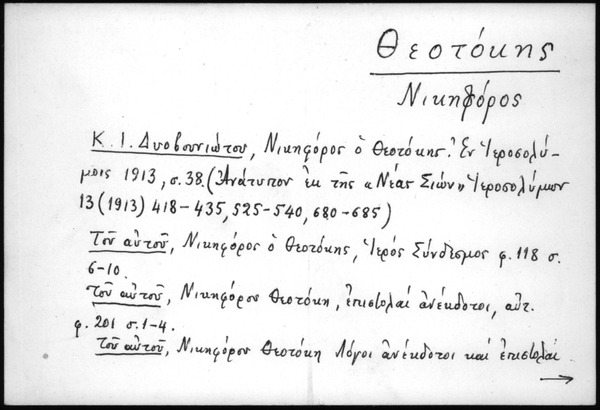 Θεοτόκης
Νικηφόρος
Κ. Ι. Δυοβουνιώτου, Νικηφόρος ὁ Θεοτόκης. Ἐν Ἱεροσολύ-
μοις 1913, σ. 38. (Ἀνάτυπον ἐκ τῆς «Νέας Σιών» Ἱεροσολύμων
13 (1913) 418-435, 525-540, 680-685)
Τοῦ αὐτοῦ, Νικηφόρος ὁ Θεοτόκης, Ἱερός Σύνδεσμος φ. 118 σ.
6-10.
Τοῦ αὐτοῦ, Νικηφόρου Θεοτόκη, ἐπιστολαί ἀνέκδοτοι, αὐτ.
φ. 201 σ. 1-4.
Τοῦ αὐτοῦ, Νικηφόρου Θεοτόκη Λόγοι ἀνέκδοτοι καί ἐπιστολαί
→